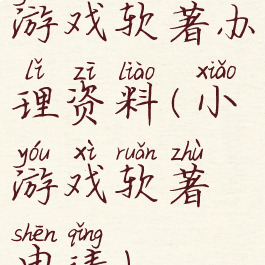 游戏软著办
lǐ zī liào xiǎo
理资料(小
yóu xì ruǎn zhù
游戏软著
shēn qǐng
申请)